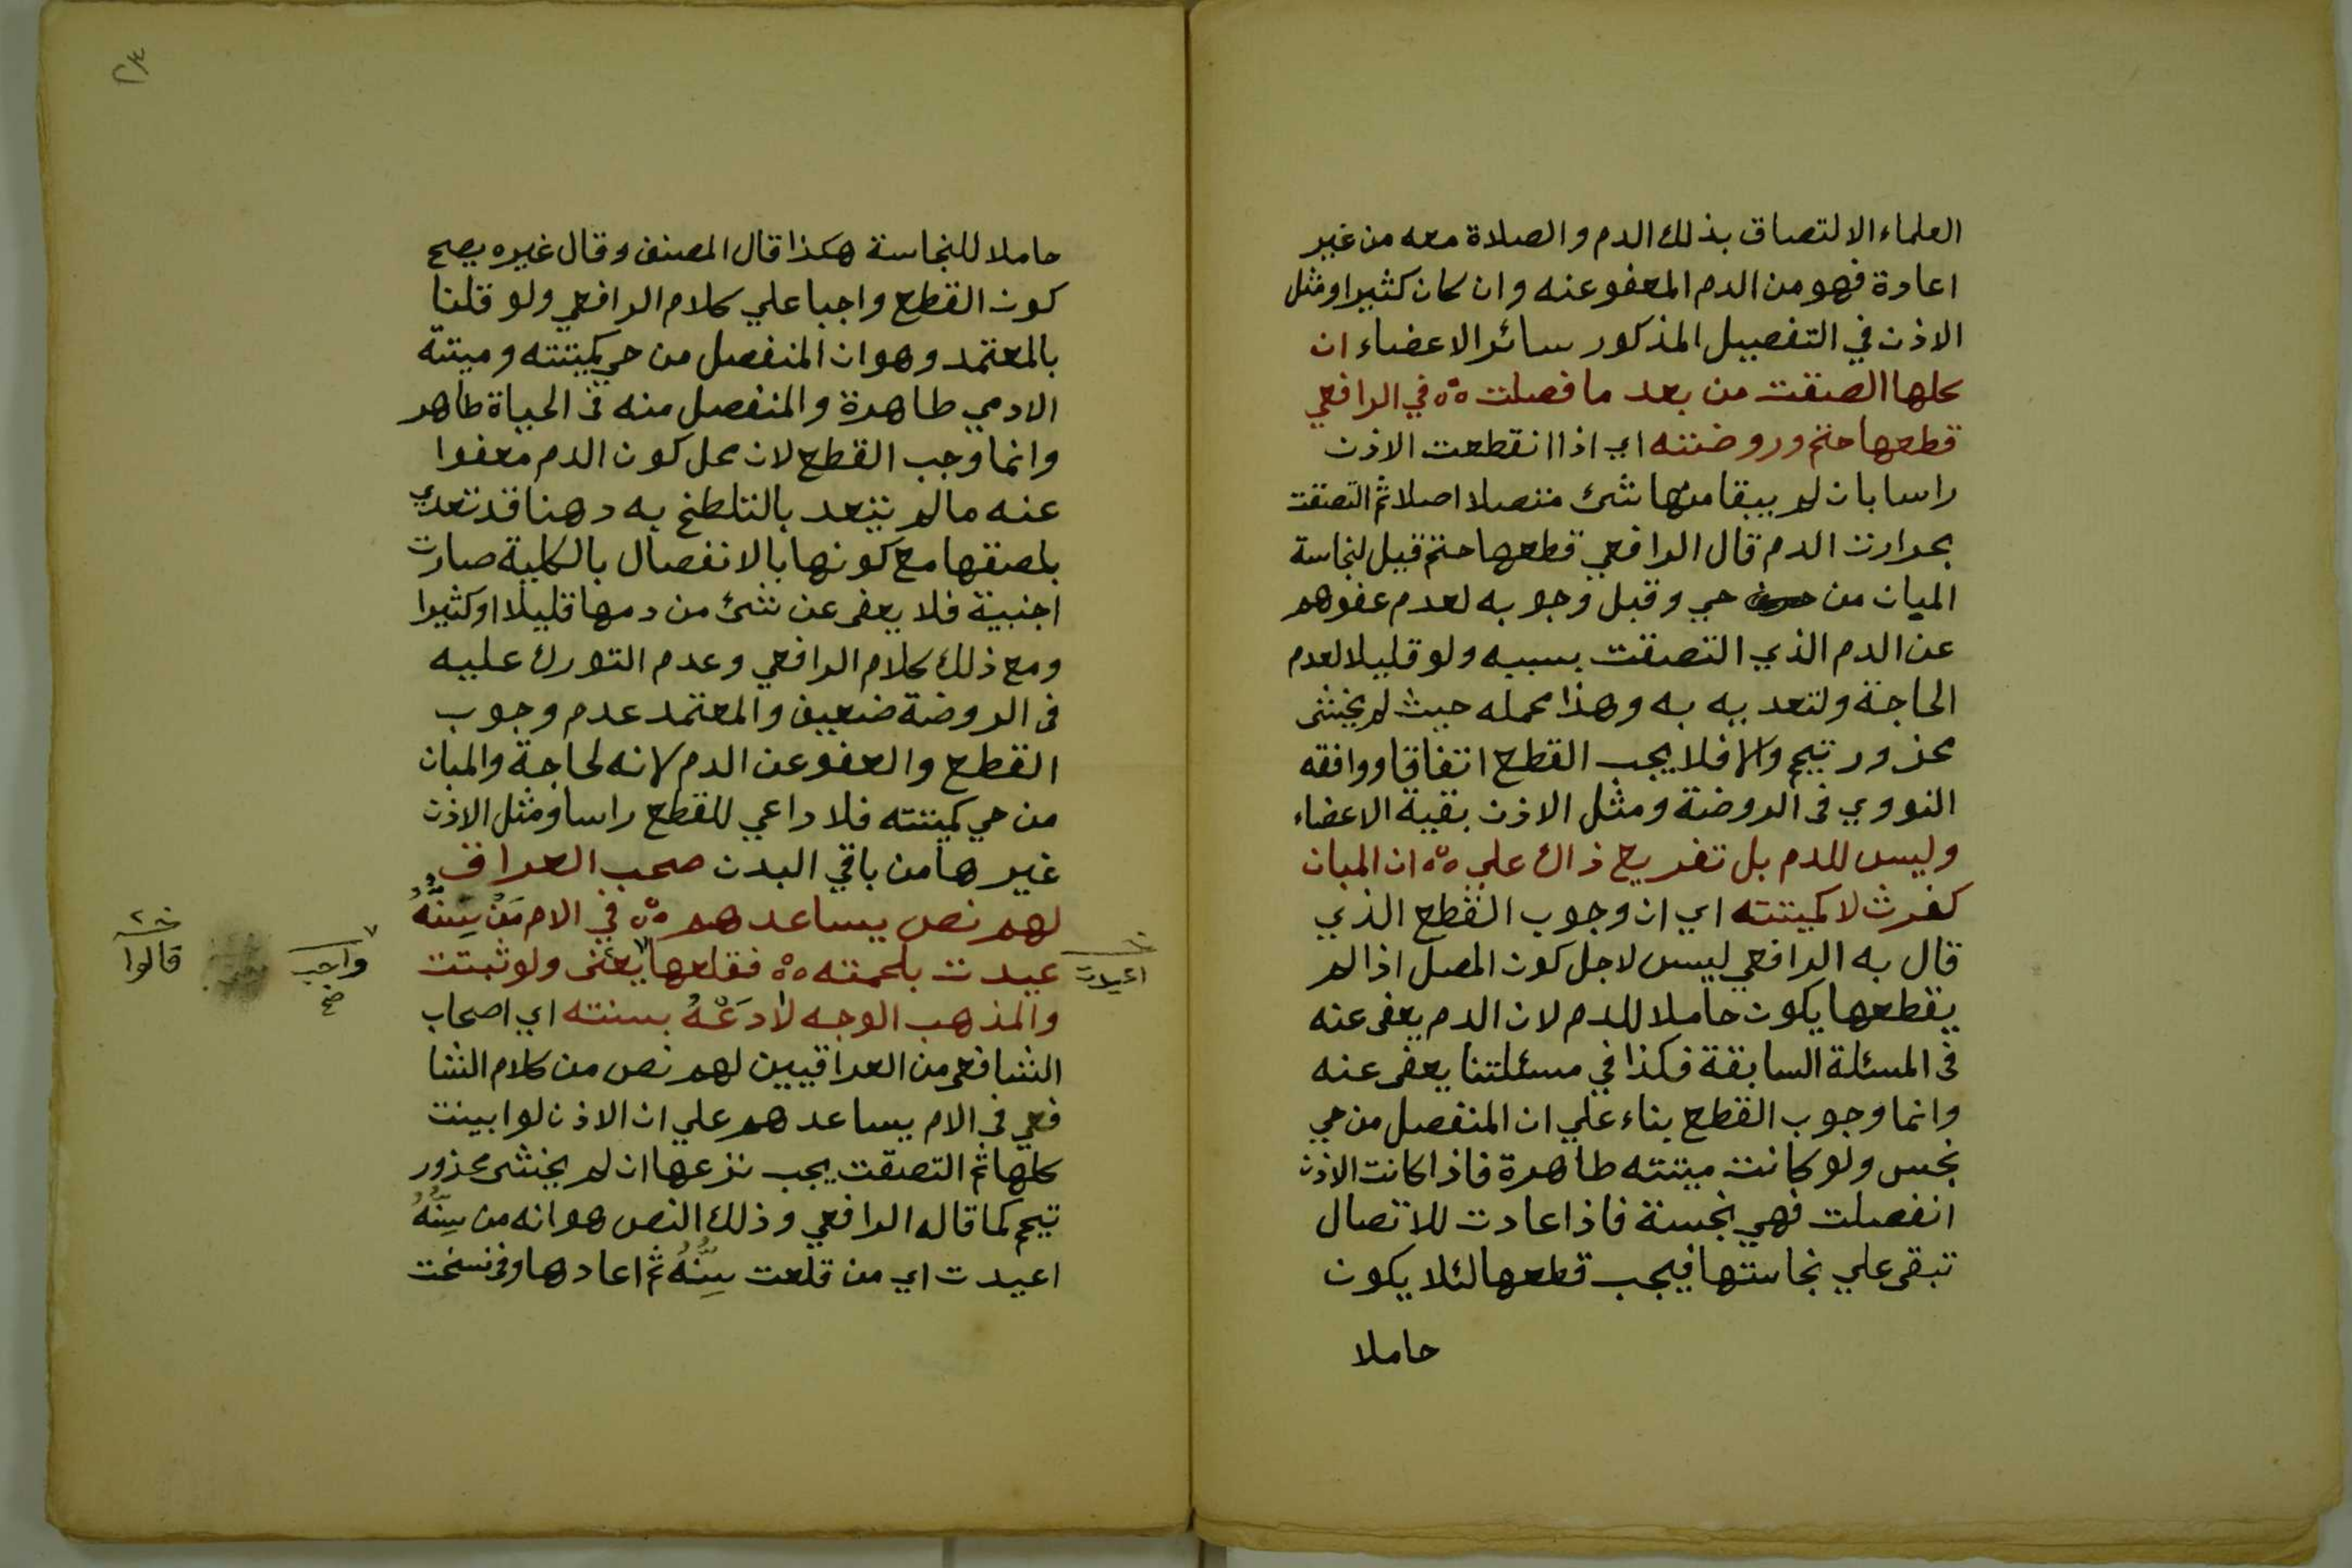 العلماء الالتصاق بذلك الدم والصلاة معه من غير
اعادة فهو من الدم المعفو عنه وان كان كثيرا ومثل
الاذن في التفصيل المذكور سائر الاعضاء ان
كلها الصقت من بعد ما فصلت ٥٥ في الرافعي
قطعها حتم وروضته اي اذا انقطعت الاذن
راسا بان لم يبقا منها شئ متصلا اصلا ثم التصقت
بحرارت الدم قال الرافعي قطعها حتم قيل لنجاسة
المبان من حي وقيل وجوبه لعدم عفوهم
عن الدم الذي التصقت بسببه ولو قليلا لعدم
الحاجة ولتعديه به وهذا محمله حيث لم يخشى
محذور تيمم والا فلا يجب القطع اتفاقا ووافقه
النووي في الروضة ومثل الاذن بقية الاعضاء
وليس للدم بل تفريع ذاك علي ٥٥ ان المبان
كفرث لا كميتته اي ان وجوب القطع الذي
قال به الرافعي ليس لاجل كون المصل اذا لم
يقطعها يكون حاملا للدم لان الدم يعفى عنه
في المسئلة السابقة فكذا في مسئلتنا يعفى عنه
وانما وجوب القطع بناء علي ان المنفصل من حي
نجس ولو كانت ميتته طاهرة فاذا كانت الاذن
انفصلت فهي نجسة فاذا عادت للاتصال
تبقى علي نجاستها فيجب قطعها لئلا يكون
حاملا
حاملا للنجاسة هكذا قال المصنف وقال غيره يصح
كون القطع واجبا علي كلام الرافعي ولو قلنا
بالمعتمد وهو ان المنفصل من حي كميتته وميتة
الادمي طاهرة والمنفصل منه في الحياة طاهر
وانما وجب القطع لان محل كون الدم معفوا
عنه مالم يتعد بالتلطخ به وهنا قد تعدي
بلصقها مع كونها بالانفصال بالكلية صارت
اجنبية فلا يعفى عن شئ من دمها قليلا او كثيرا
ومع ذلك كلام الرافعي وعدم التورك عليه
في الروضة ضعيف والمعتمد عدم وجوب
القطع والعفو عن الدم لانه لحاجة والمبان
من حي كميتته فلا داعي للقطع راسا ومثل الاذن
غيرها من باقي البدن صحب العراق
لهم نص يساعدهم ٥٥ في الام من سِنُّهُ
عيدت بلحمته ٥٥ فقلعها يعنى ولو ثبتت
والمذهب الوجه لا دَعْهُ بسنته اي اصحاب
الشافعي من العراقيين لهم نص من كلام الشا
فعي في الام يساعدهم علي ان الاذن لو ابينت
كلها ثم التصقت يجب نزعها ان لم يخشى محذور
تيمم كما قاله الرافعي وذلك النص هو انه من سِنُّهُ
اعيدت اي من قلعت سِنُّهُ ثم اعادها وفي نسخت
اعيدت
واجب
صح
قالوا